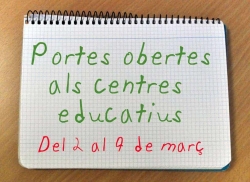 Portes obertes
als centres
educatius
Del 2 al 9 de març